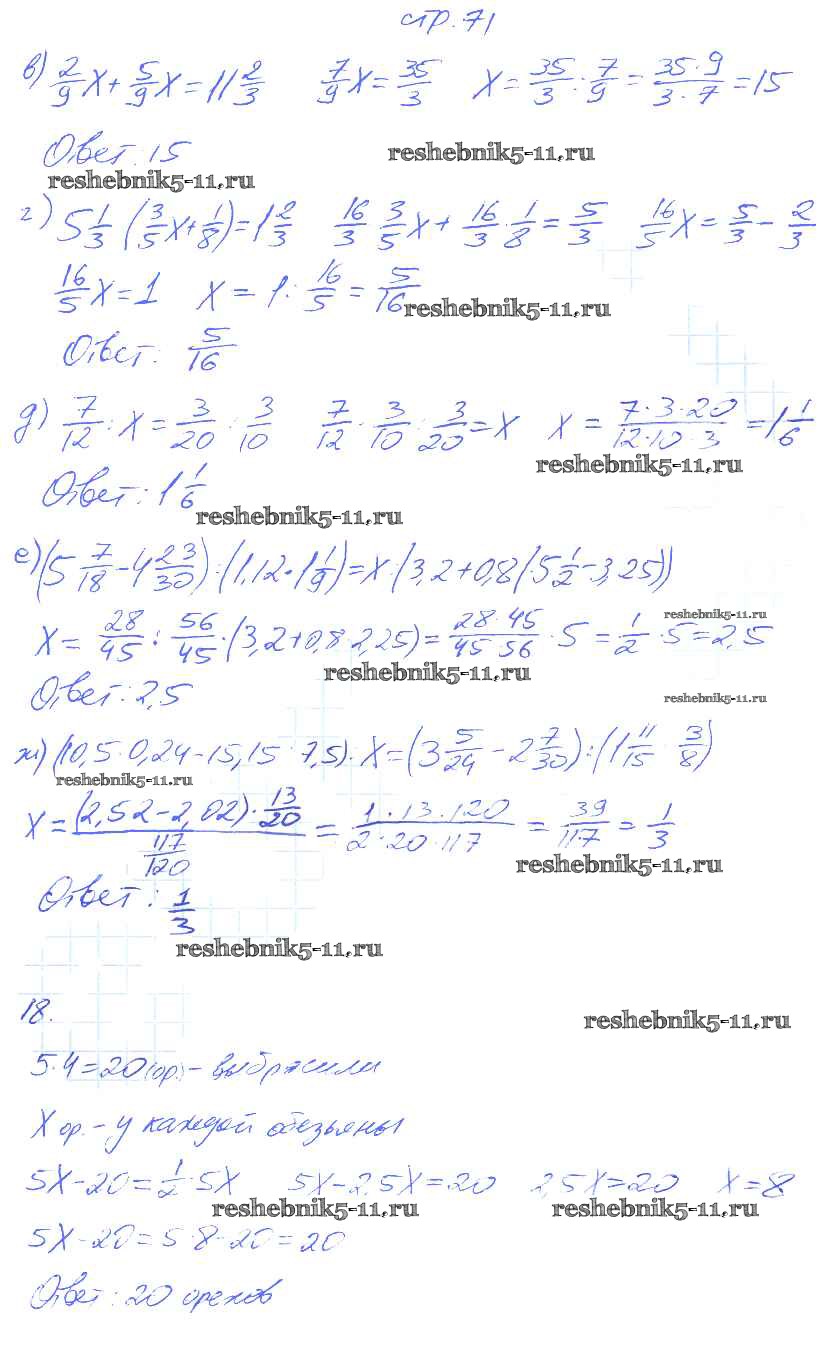 стр. 71
в) 2/9 x + 5/9 x = 11 2/3   7/9 x = 35/3   x = 35/3 : 7/9 = 35·9/3·7 = 15
Ответ. 15
reshebnik5-11.ru
reshebnik5-11.ru
г) 5 1/3 (3/5 x + 1/8) = 1 2/3   16/3 · 3/5 x + 16/3 · 1/8 = 5/3   16/5 x = 5/3 - 2/3
16/5 x = 1   x = 1 : 16/5 = 5/16
reshebnik5-11.ru
Ответ: 5/16
д) 7/12 : x = 3/20 : 3/10   7/12 · 3/10 : 3/20 = x   x = 7·3·20/12·10·3 = 1 1/6
reshebnik5-11.ru
Ответ: 1 1/6
reshebnik5-11.ru
е) (5 7/18 - 4 23/30) : (1,12 · 1 1/9) = x : (3,2 + 0,8 (5 1/2 - 3,25))
reshebnik5-11.ru
x = 28/45 : 56/45 · (3,2 + 0,8 · 2,25) = 28·45/45·56 · 5 = 1/2 · 5 = 2,5
reshebnik5-11.ru
Ответ: 2,5
reshebnik5-11.ru
ж) (10,5 · 0,24 - 15,15 : 7,5) : x = (3 5/24 - 2 7/30) : (1 11/15 · 3/8)
reshebnik5-11.ru
x = (2,52 - 2,02) · 13/20 / 117/120 = 1·13·120/2·20·117 = 39/117 = 1/3
reshebnik5-11.ru
Ответ: 1/3
reshebnik5-11.ru
18.
reshebnik5-11.ru
5·4=20 (ор.) - выбросили
X ор. - у каждой обезьяны
5x - 20 = 1/2 · 5x   5x - 2,5x = 20   2,5x = 20   x = 8
reshebnik5-11.ru reshebnik5-11.ru
5x - 20 = 5 · 8 - 20 = 20
Ответ: 20 орехов